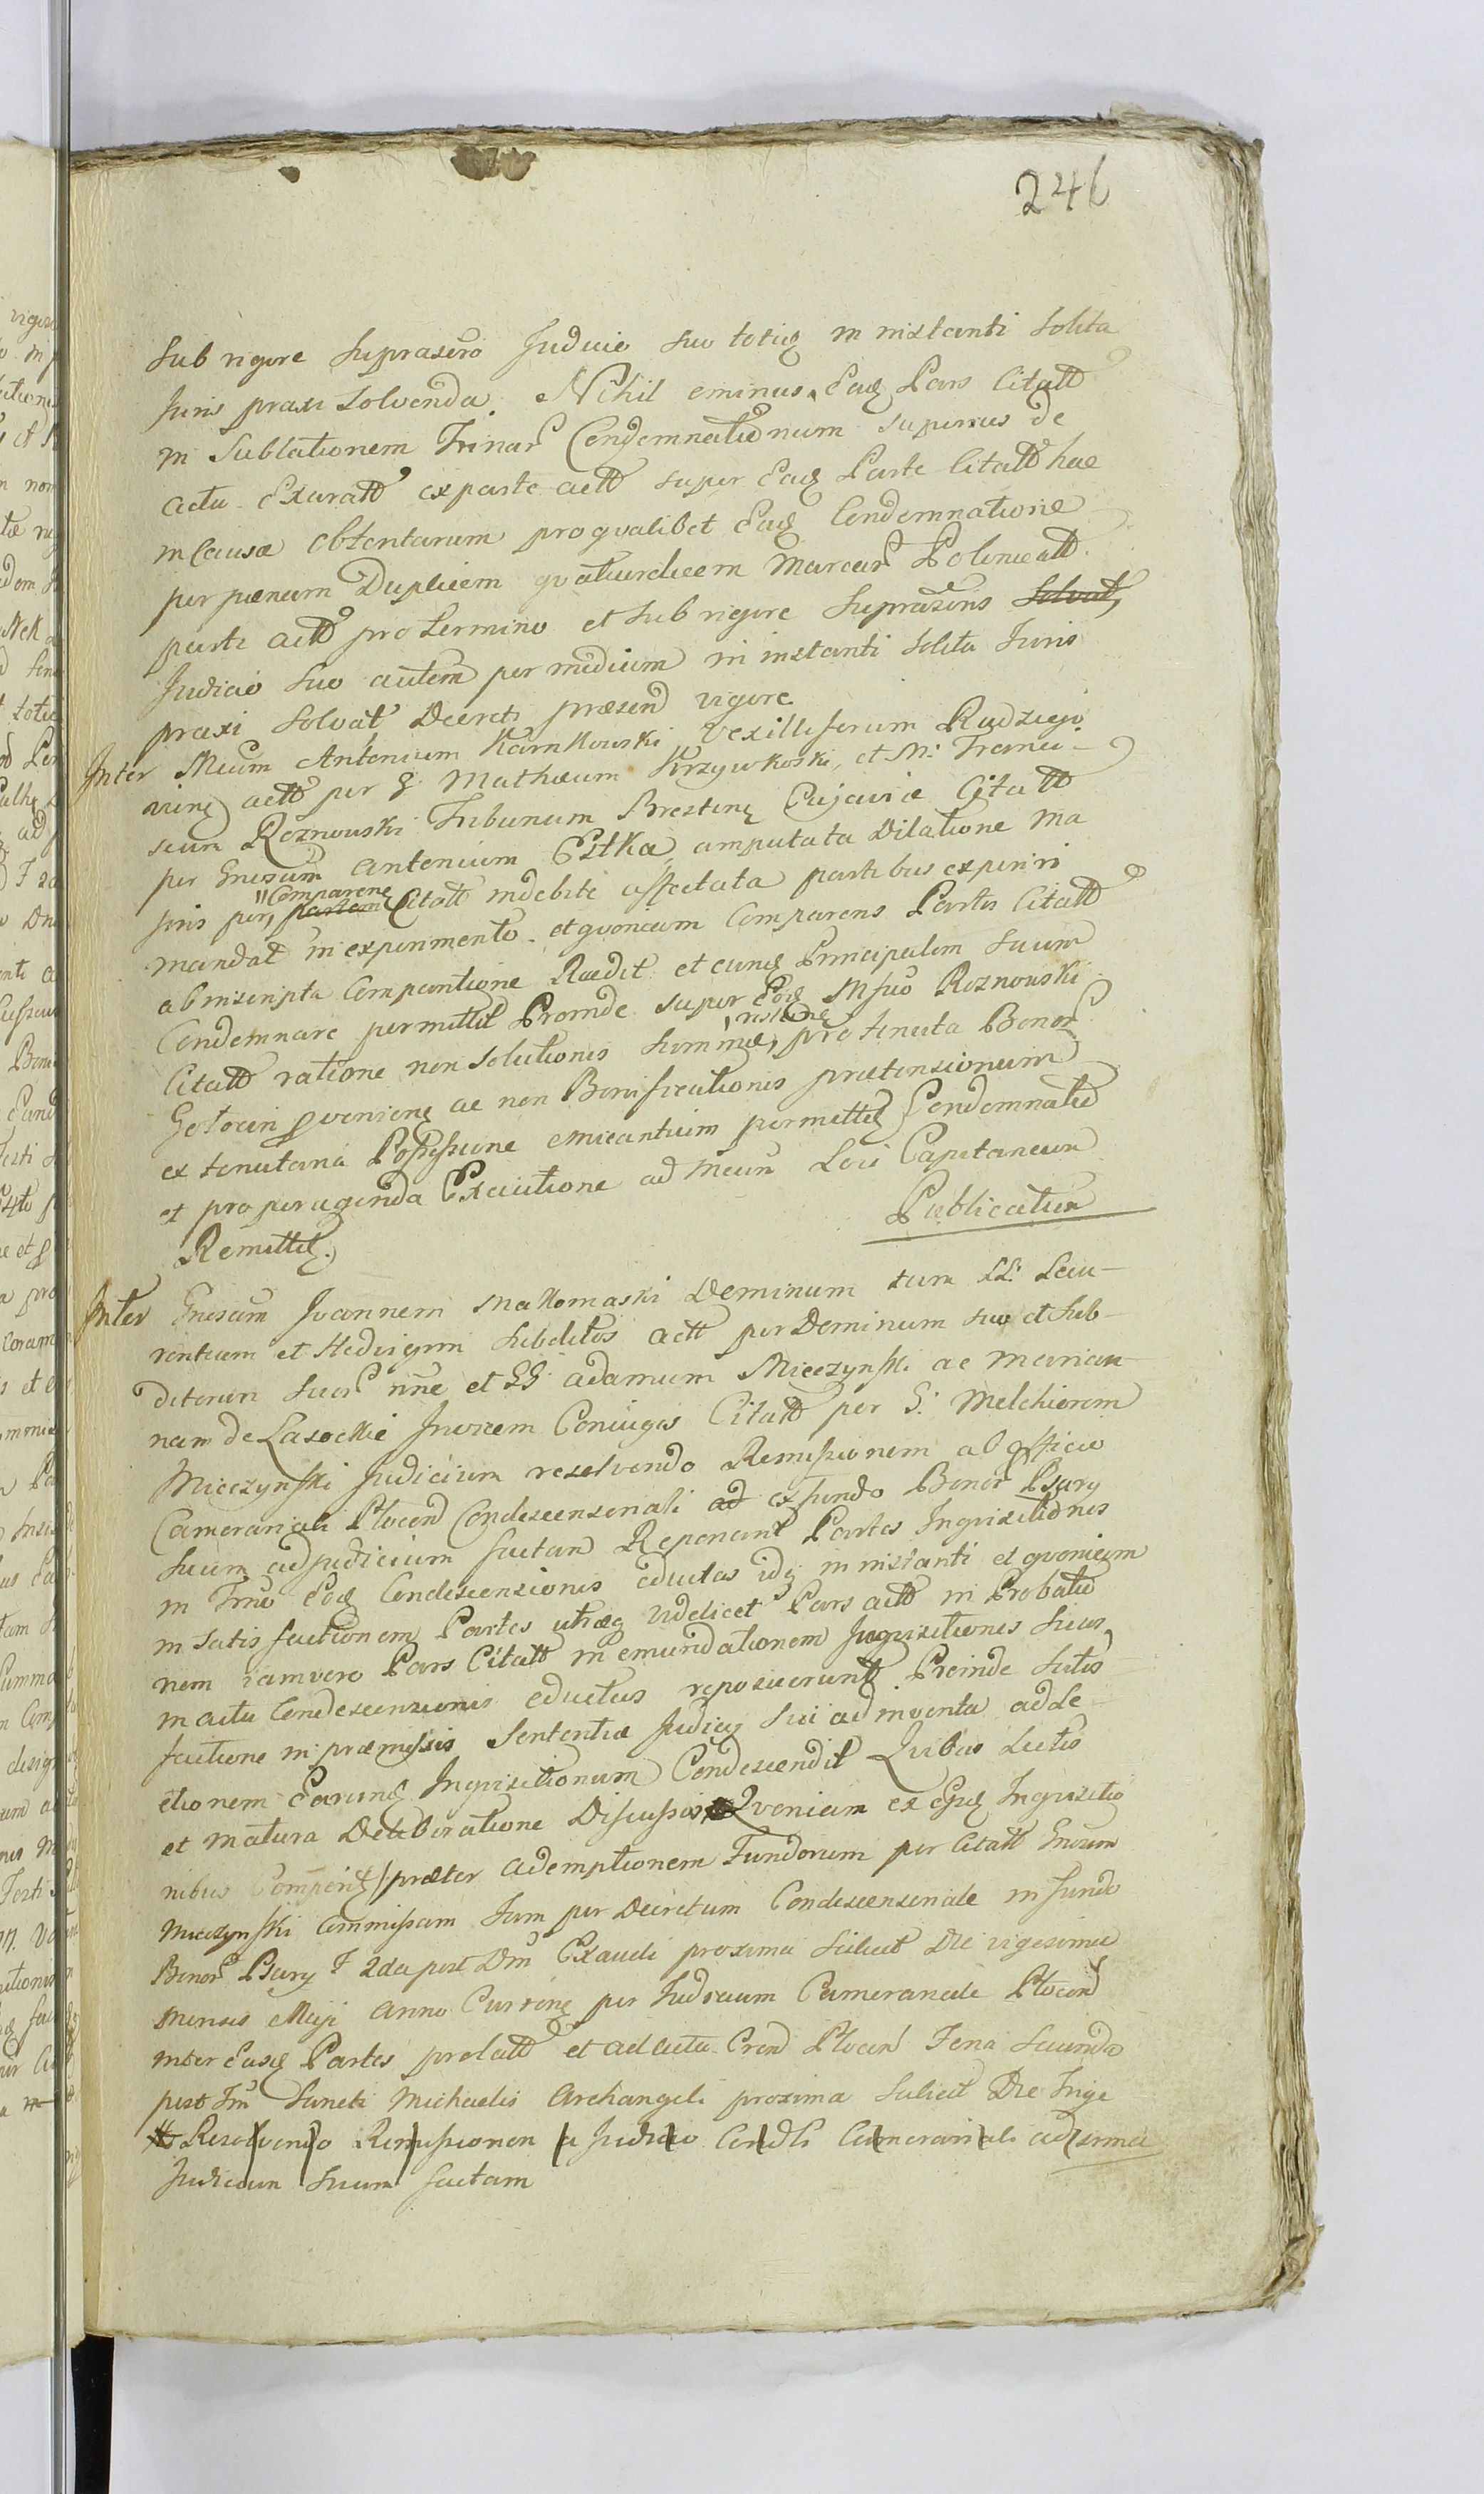 246
Sub rigore suprascro Judicio suo totiq in instanti solita
Juris praxi solvenda. Nihil eminus Eaq Pars Citatt
in Sublationem Trinar Condemnationum superius de
actu Exaratt ex parte actt super Eaq Parte Citatt hac
in Causa obtentarum pro qvalibet Eaq Condemnatione
per paenam Duplicem qvatuordecem Marcar Polonicatt
parti actt pro termino et sub rigore suprascris solvat,
Judicio suo autem per mediam in instanti solita Juris
praxi solvat Decreti praesend vigore
Inter Mcum Antonium Karnkowski Vexilliferum Radziejo
vieng actt per G Mathaeum Krzywkoski, et M: Franci-
scum Roznowski Tribunum Brestenq Cujaviae Citatt
per Gnrosum Antonium Pitka, amputata Dilatione ma
joris per, partem "Compareng Citatt indebite affectata partibus experiri
mandat in experimento. et qvoniam Comparens Partis Citatt
ab inscripta Comparitione Raedit et eunq Principalem suum
Condemnare permittit Proinde super Eoq Msuo Roznowski
Citatt ratione non solutionis summae, restanq pro tenuta Bonor
Gotocin proveniens ac non Bonificationis praetensionum
ex tenutaria Possessione emicantium permittiq Condemnatio
et pro peragenda Executione ad Mcum Loci Capitaneum
Remittit. Publicatum
Inter Gnrosum Joannem Makomaski Dominum tum LL: Lau-
rentium et Hedvigim subditos actt per Dominum suo et sub-
ditorum suor nne et GG: adamum Mieczynski ac Marian-
nam de Lasockie Invicem Coniuges Citatt per G: Melchiorem
Mieczynski Judicium resolvendo Remissionem ab officio
Camerariali Plocen Condescensonali ad ex fundo Bonor Psary
suum ad Judicium factam Reponant Partes Inqvisitiones
in Trno Eoq Condescensionis eductas idq in instanti et qvoniam
in satisfactionem Partes utraeq videlicet Pars actt in Probatio
nem iam vero Pars Citatt in emundationem Inqvisitiones suas
in actu Condescensionis eductas reposuerunt Proinde satis
factione in praemissis Sententiae Judicy sui adinventa ad Le
ctionem Earunq Inqvisitionum Condescendit Qvibus Lectis
et matura Deliberatione Discussis Qvoniam ex Eisq Inqvisitio
nibus Comperiq praeter ademptionem Fundorum per Citatt Gnrosum
Mieczynski Commissam Jam per Decretum Condescensonale in fundo
Bonor Psary F 2da post Dm Exaudi proxima scilicet Die vigesima
Mensis Maji Anno Curreng per Judicium Camerariale Plocen
inter Easq Partes prolatt et ad acta Cren Plocen Feria Secunda
post Fm Sancti Michaelis Archangeli proxima scilicet Die Trige
Resolvendo Remissionem a Judicio Cendli Camerariali ad sima
Judicium suum factam